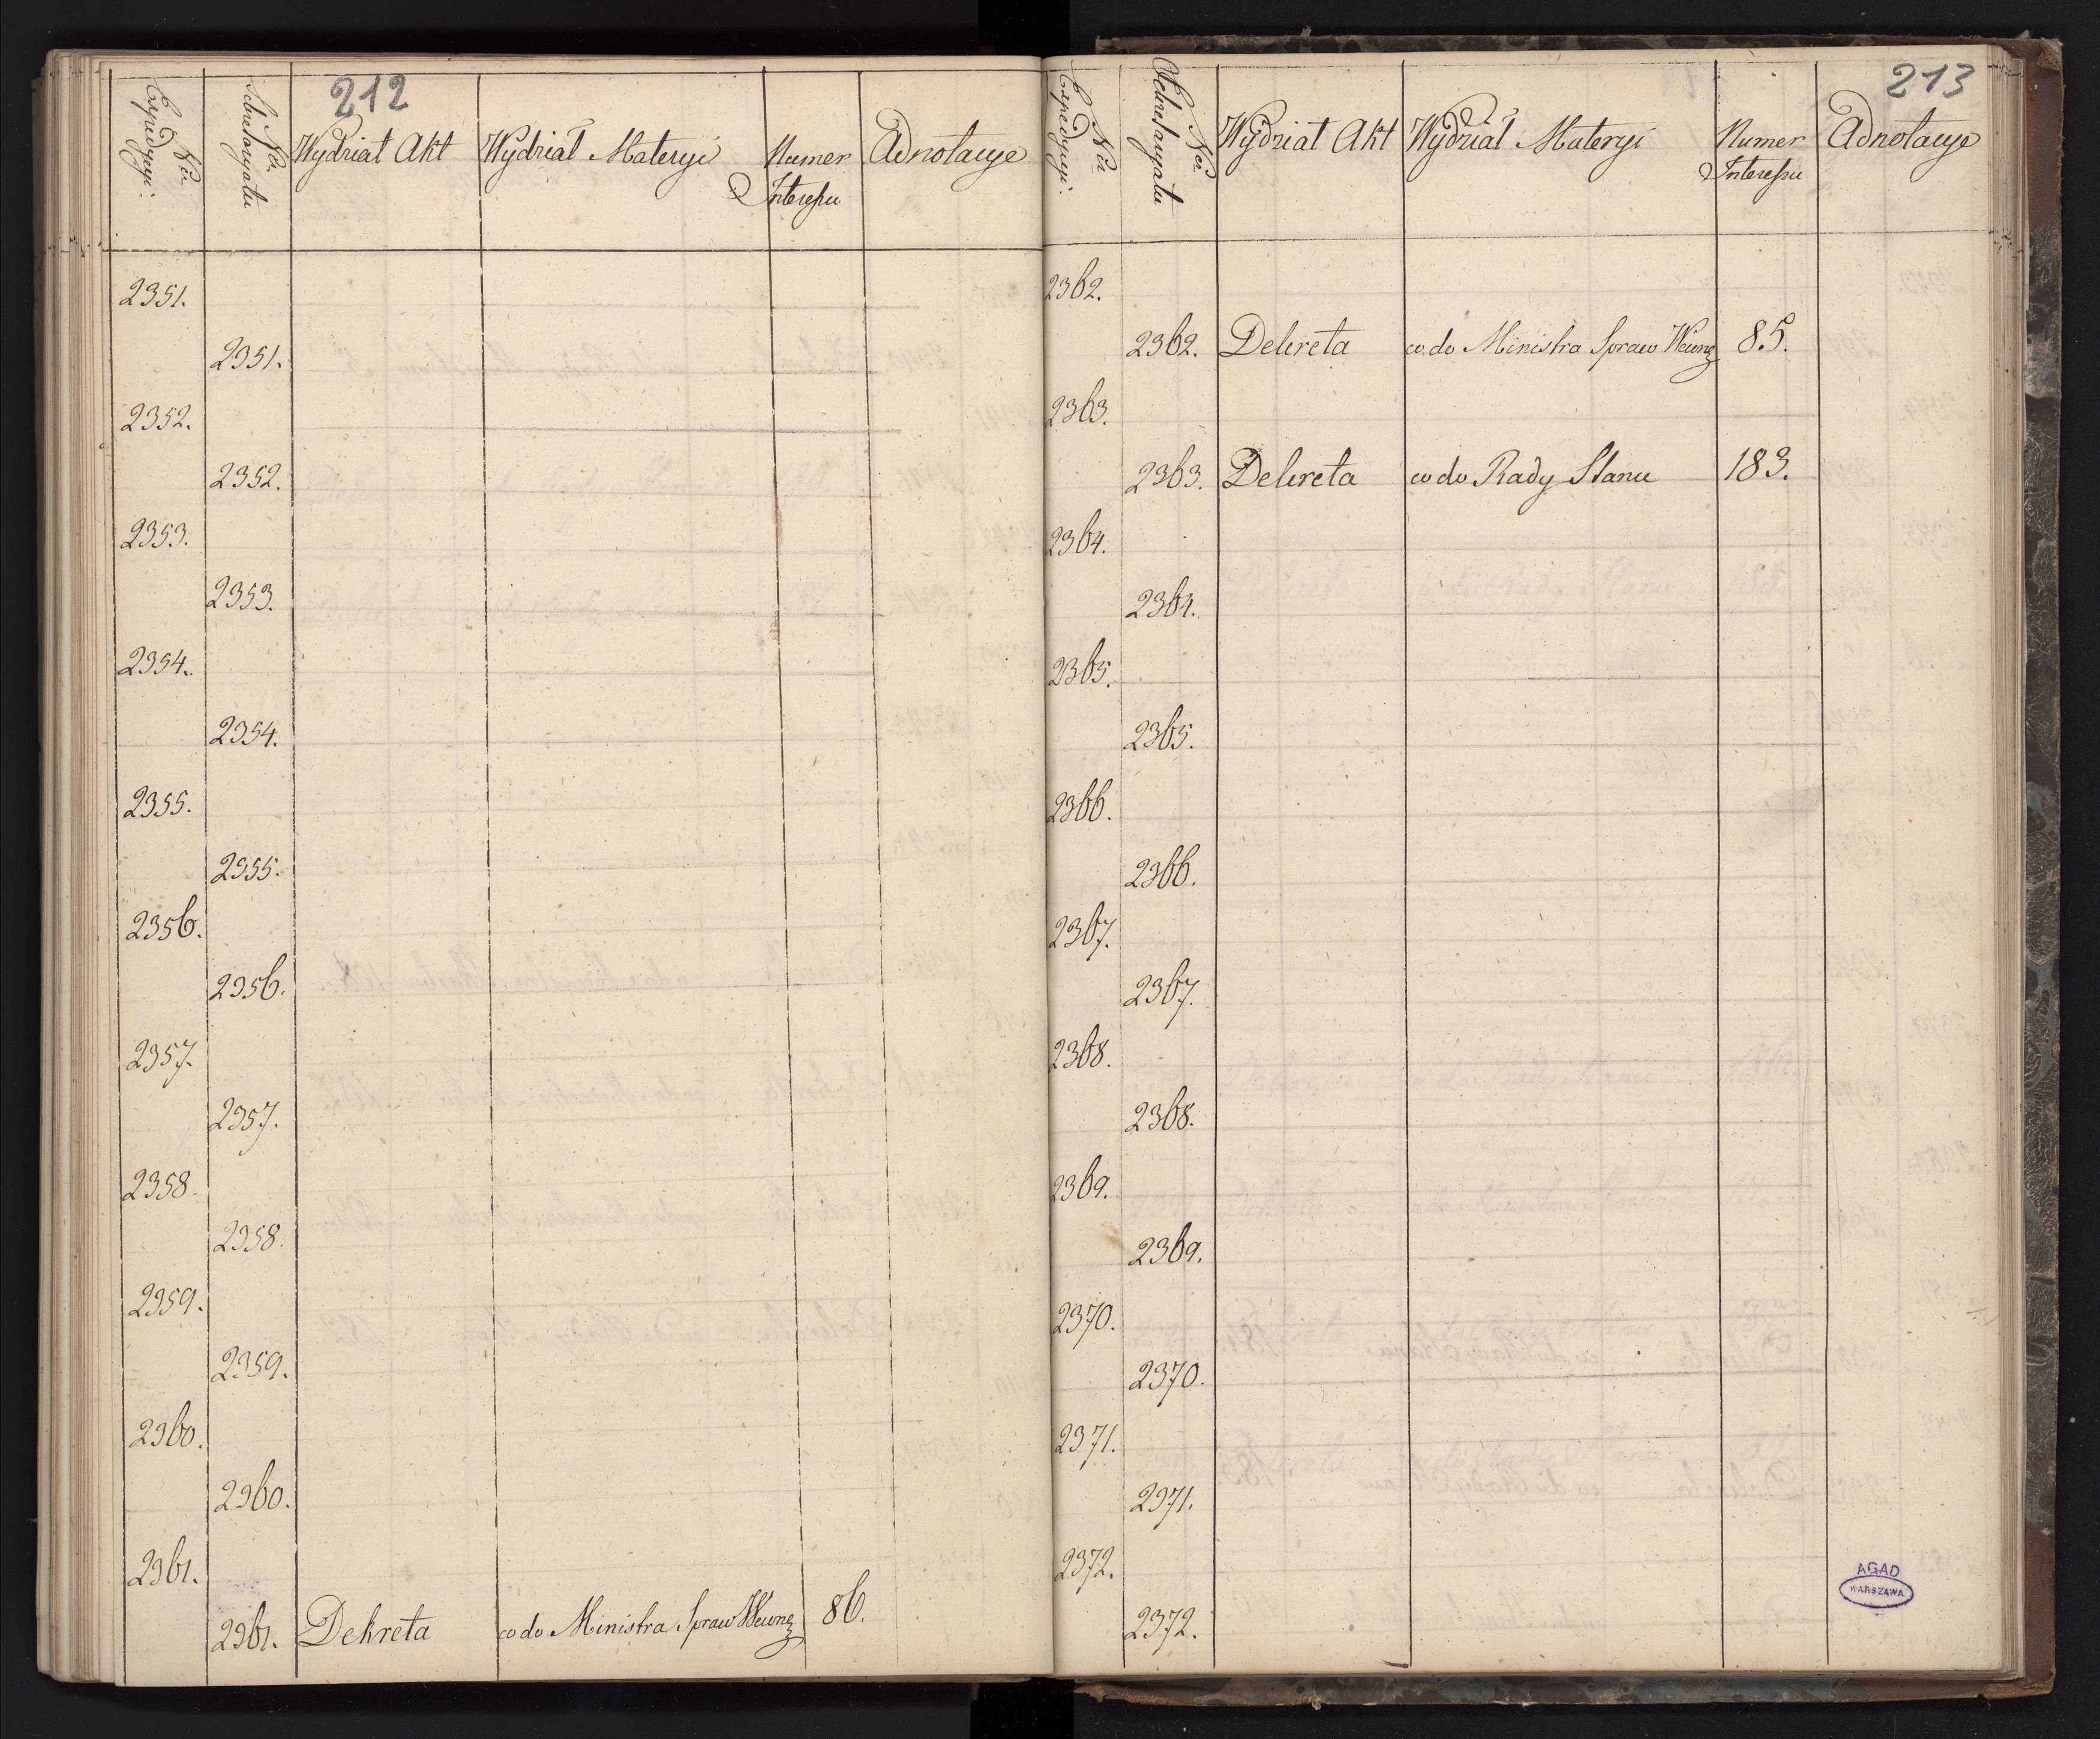 212
Nro Expedycyi.
Nro Sekretaryatu
Wydział Akt
Wydział Materyi
Numer Interessu
Adnotacye
2351.
2351.
2352.
2352.
2353.
2353.
2354.
2354.
2355.
2355.
2356.
2356.
2357.
2357.
2358.
2358.
2359.
2359.
2360.
2360.
2361.
2361. Dekreta co do Ministra Spraw Wewnę 86.
213
Nro Expedycyi.
Nro Sekretaryatu
Wydział Akt
Wydział Materyi
Numer Interessu
Adnotacye
2362.
2362. Dekreta co do Ministra Spraw Wewnę 85.
2363.
2363. Dekreta co do Rady Stanu 183.
2364.
2364.
2365.
2365.
2366.
2366.
2367.
2367.
2368.
2368.
2369.
2369.
2370.
2370.
2371.
2371.
2372.
2372.
AGAD
WARSZAWA